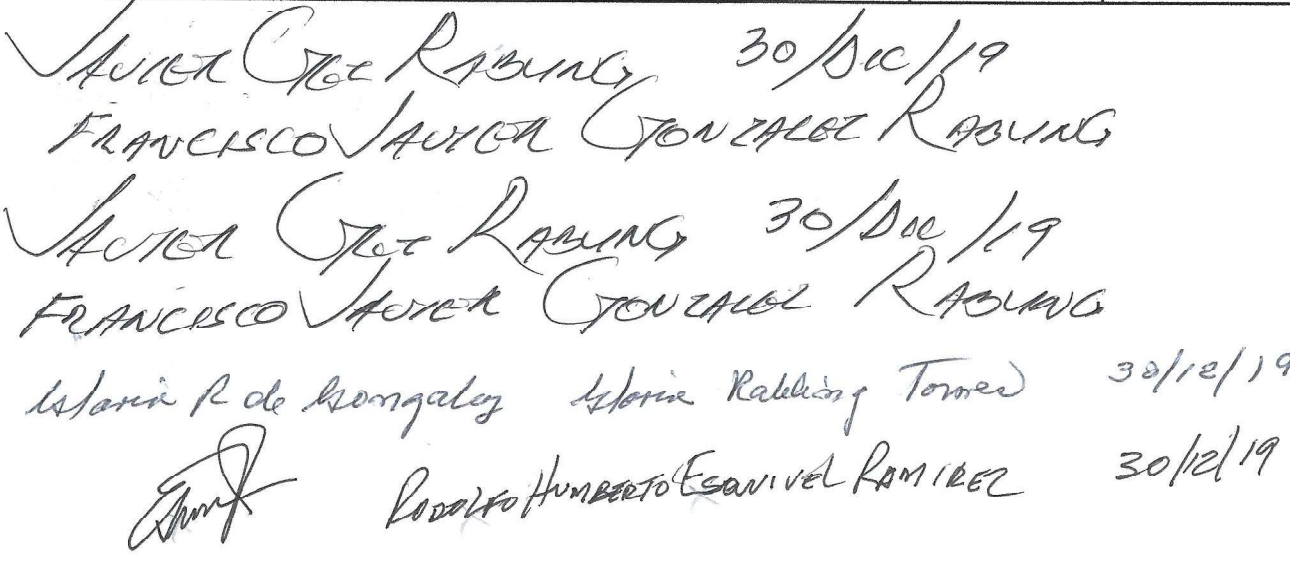 JAVIER GZZ RABLING 30/DIC/19
FRANCISCO JAVIER GONZALEZ RABLING
JAVIER GZZ RABLING 30/DIC/19
FRANCISCO JAVIER GONZALEZ RABLING
Gloria R de Gonzalez Gloria Rabling Torres 30/12/19
RODOLFO HUMBERTO ESQUIVEL RAMIREZ 30/12/19